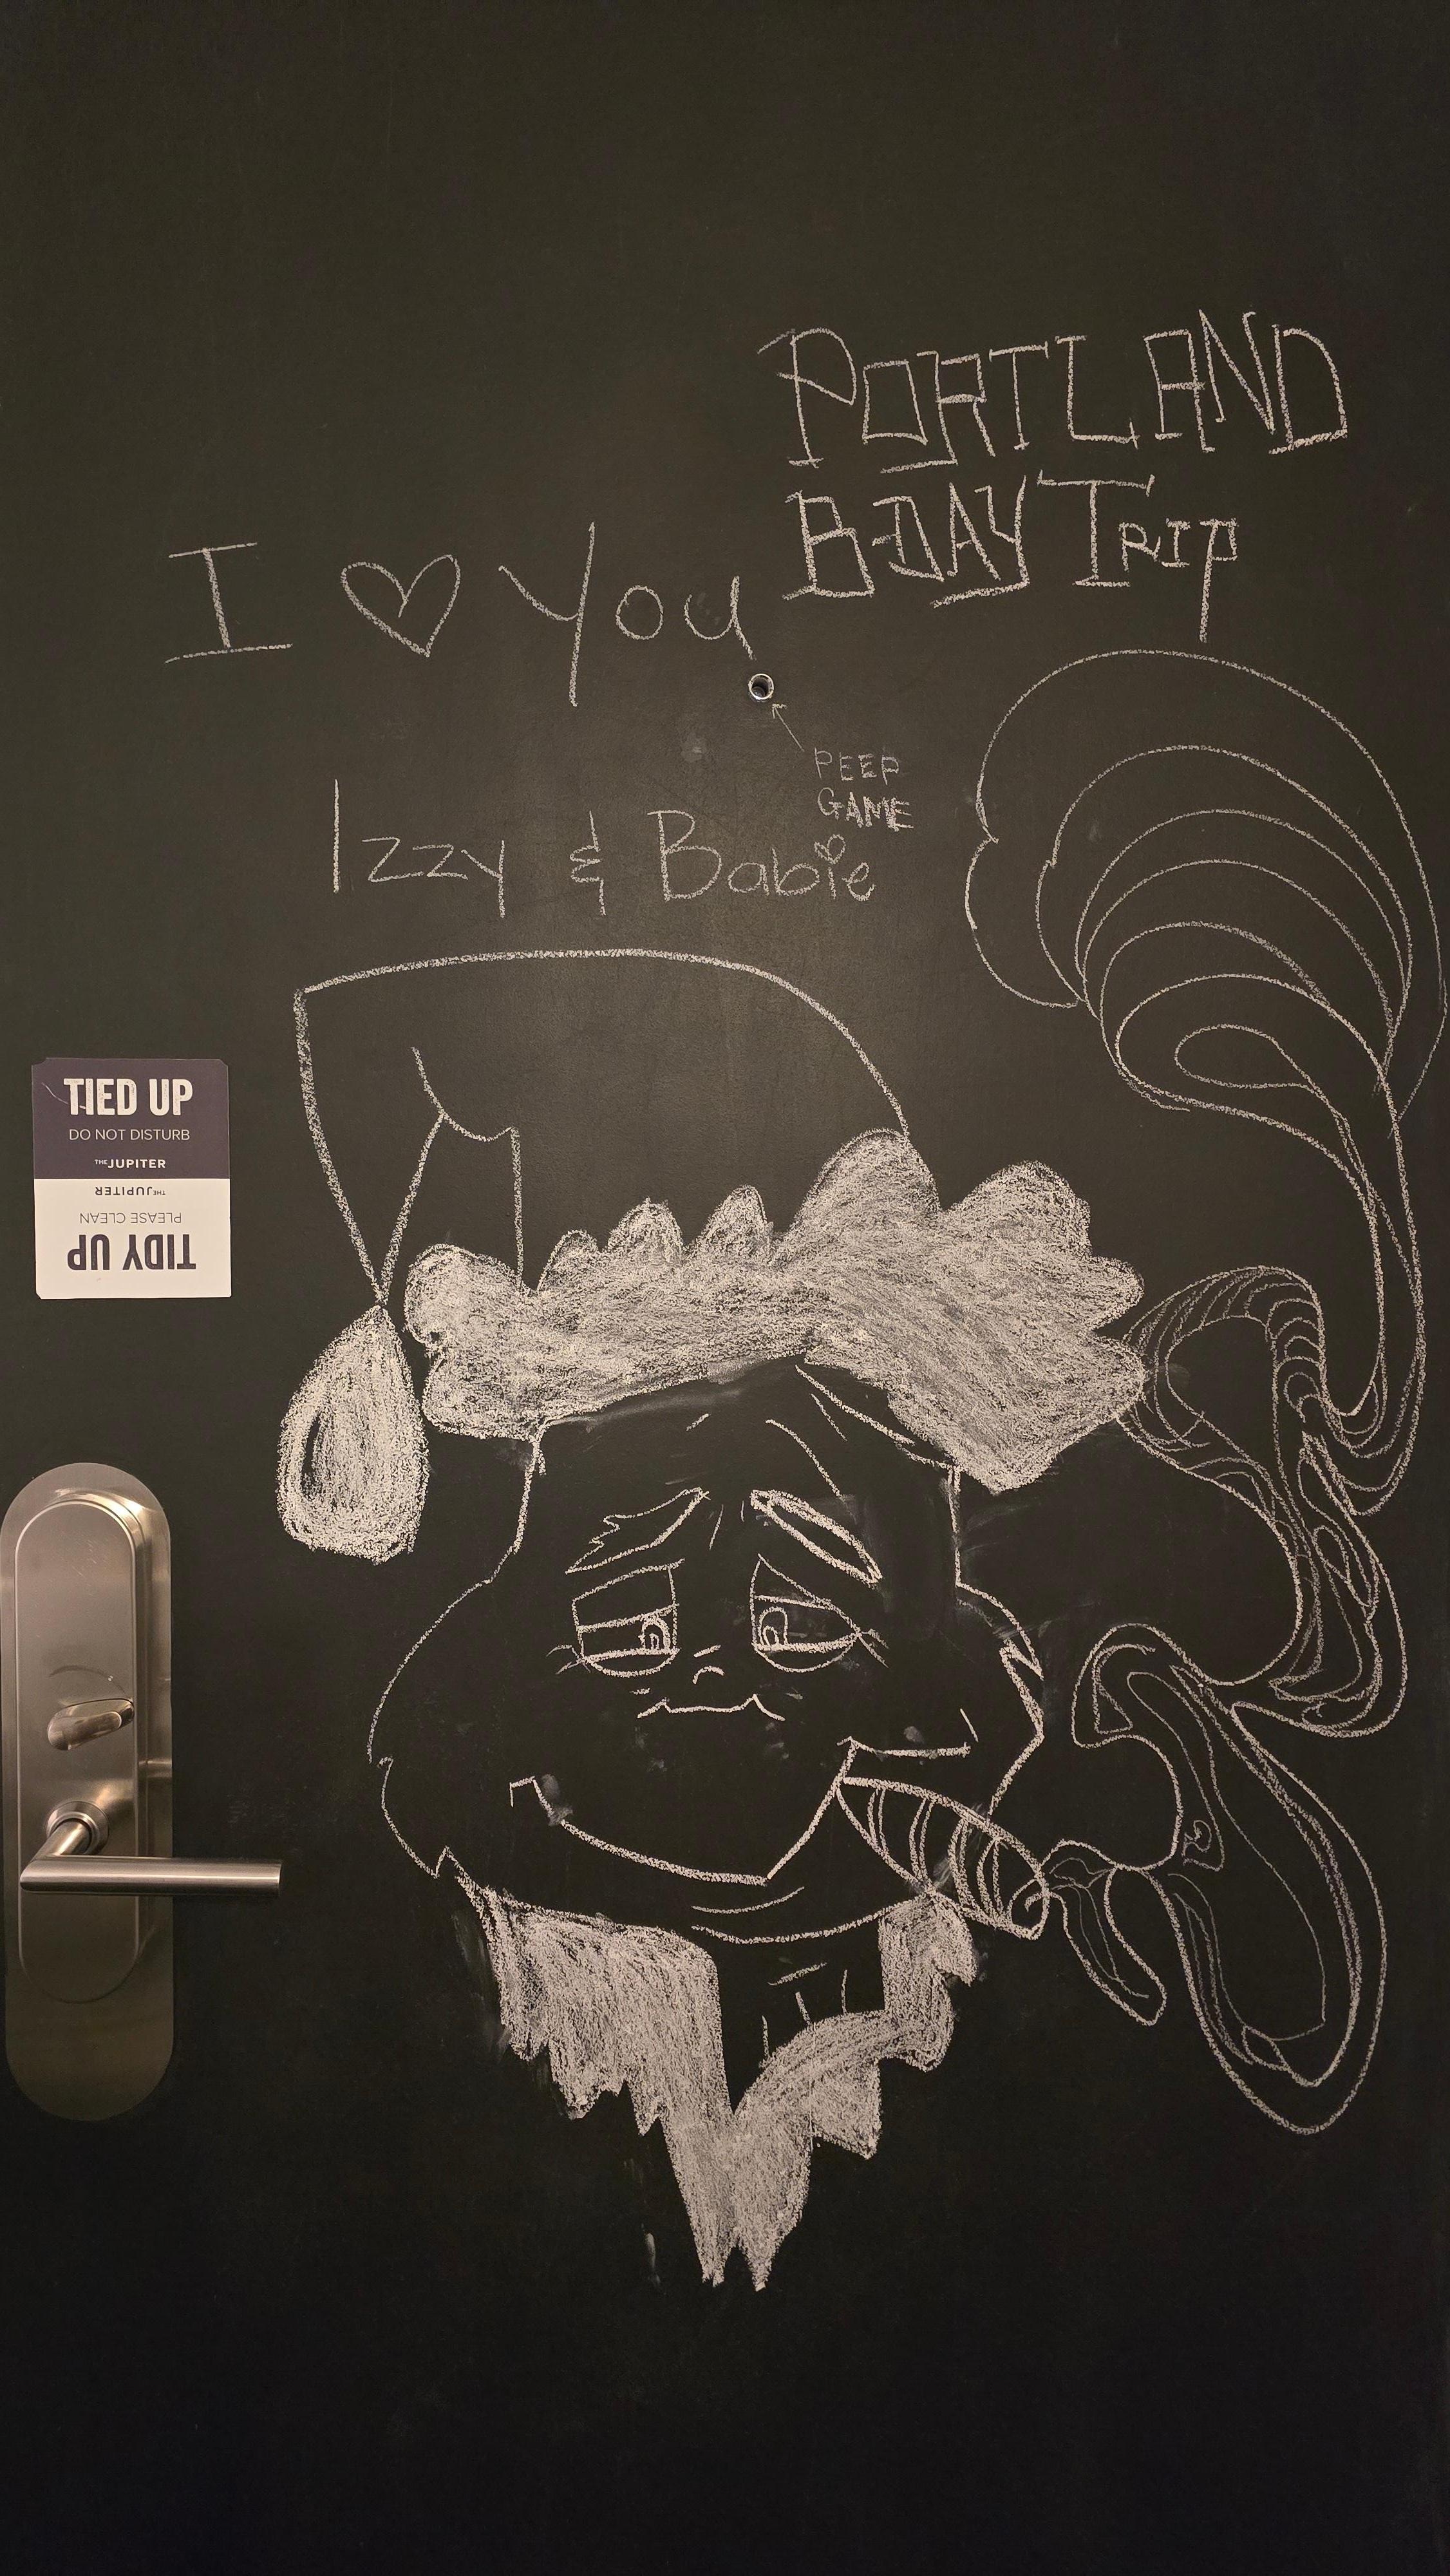 PORTLAND
B-DAY TRIP
I ♡ You
PEEP
GAME
Izzy & Babie
TIED UP
DO NOT DISTURB
THE JUPITER
THE JUPITER
PLEASE CLEAN
TIDY UP